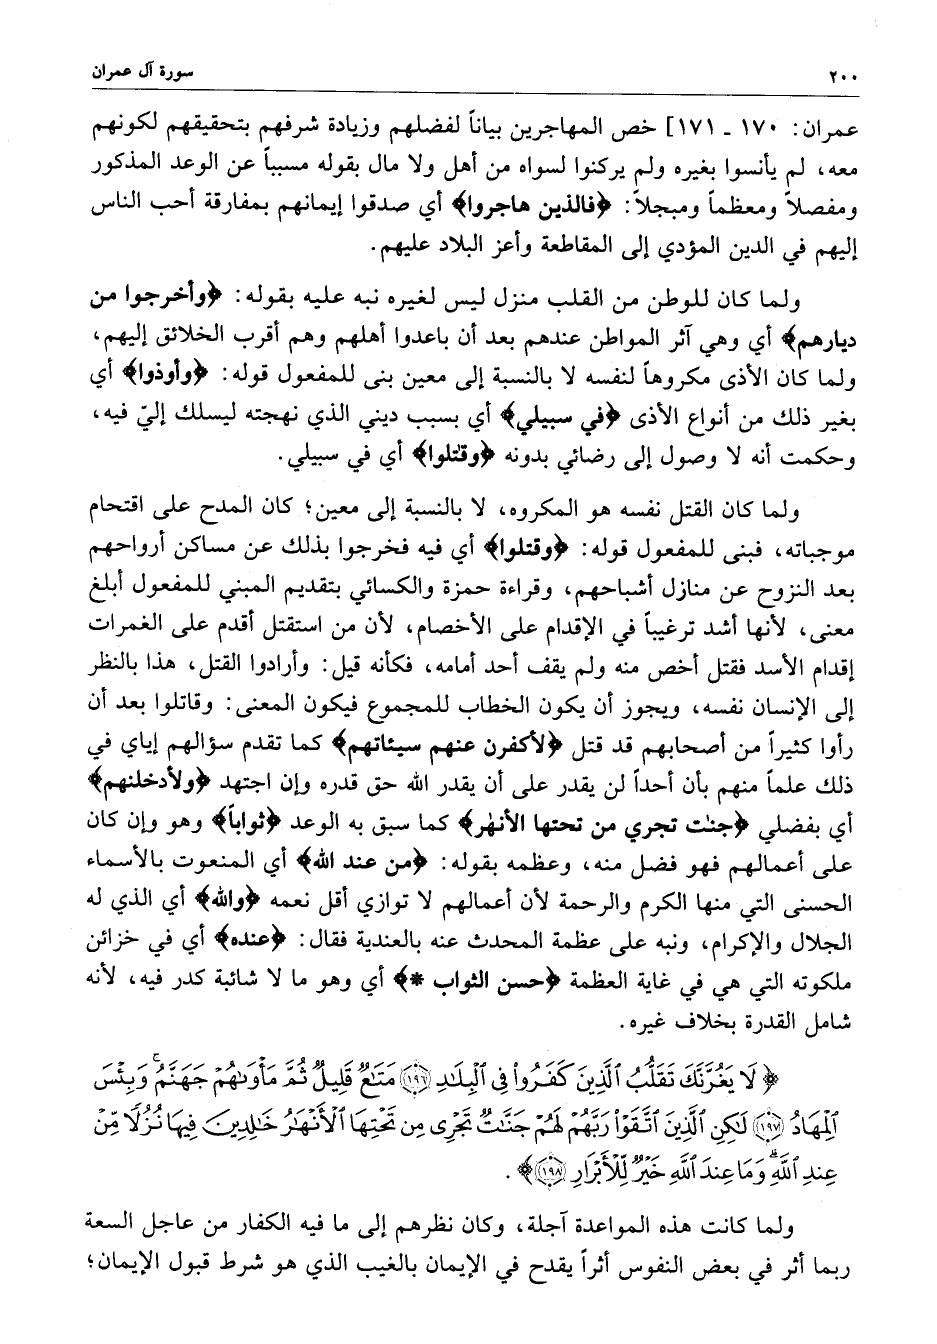 ٢٠٠ سورة آل عمران
عمران: ١٧٠ ـ ١٧١] خص المهاجرين بياناً لفضلهم وزيادة شرفهم بتحقيقهم لكونهم
معه، لم يأنسوا بغيره ولم يركنوا لسواه من أهل ولا مال بقوله مسبباً عن الوعد المذكور
ومفصلاً ومعظماً ومبجلاً: ﴿فالذين هاجروا﴾ أي صدقوا إيمانهم بمفارقة أحب الناس
إليهم في الدين المؤدي إلى المقاطعة وأعز البلاد عليهم.
ولما كان للوطن من القلب منزل ليس لغيره نبه عليه بقوله: ﴿وأخرجوا من
ديارهم﴾ أي وهي آثر المواطن عندهم بعد أن باعدوا أهلهم وهم أقرب الخلائق إليهم،
ولما كان الأذى مكروهاً لنفسه لا بالنسبة إلى معين بنى للمفعول قوله: ﴿وأوذوا﴾ أي
بغير ذلك من أنواع الأذى ﴿في سبيلي﴾ أي بسبب ديني الذي نهجته ليسلك إليّ فيه،
وحكمت أنه لا وصول إلى رضائي بدونه ﴿وقٰتلوا﴾ أي في سبيلي.
ولما كان القتل نفسه هو المكروه، لا بالنسبة إلى معين؛ كان المدح على اقتحام
موجباته، فبنى للمفعول قوله: ﴿وقتلوا﴾ أي فيه فخرجوا بذلك عن مساكن أرواحهم
بعد النزوح عن منازل أشباحهم، وقراءة حمزة والكسائي بتقديم المبني للمفعول أبلغ
معنى، لأنها أشد ترغيباً في الإقدام على الأخصام، لأن من استقتل أقدم على الغمرات
إقدام الأسد فقتل أخص منه ولم يقف أحد أمامه، فكأنه قيل: وأرادوا القتل، هذا بالنظر
إلى الإنسان نفسه، ويجوز أن يكون الخطاب للمجموع فيكون المعنى: وقاتلوا بعد أن
رأوا كثيراً من أصحابهم قد قتل ﴿لأكفرن عنهم سيئاتهم﴾ كما تقدم سؤالهم إياي في
ذلك علماً منهم بأن أحداً لن يقدر على أن يقدر الله حق قدره وإن اجتهد ﴿ولأدخلنهم﴾
أي بفضلي ﴿جنٰت تجري من تحتها الأنهٰر﴾ كما سبق به الوعد ﴿ثواباً﴾ وهو وإن كان
على أعمالهم فهو فضل منه، وعظمه بقوله: ﴿من عند الله﴾ أي المنعوت بالأسماء
الحسنى التي منها الكرم والرحمة لأن أعمالهم لا توازي أقل نعمه ﴿والله﴾ أي الذي له
الجلال والإكرام، ونبه على عظمة المحدث عنه بالعندية فقال: ﴿عنده﴾ أي في خزائن
ملكوته التي هي في غاية العظمة ﴿حسن الثواب *﴾ أي وهو ما لا شائبة كدر فيه، لأنه
شامل القدرة بخلاف غيره.
﴿لَا يَغُرَّنَّكَ تَقَلُّبُ ٱلَّذِينَ كَفَرُوا۟ فِى ٱلْبِلَٰدِ ﴿١٩٦﴾ مَتَٰعٌ قَلِيلٌ ثُمَّ مَأْوَىٰهُمْ جَهَنَّمُ ۚ وَبِئْسَ
ٱلْمِهَادُ ﴿١٩٧﴾ لَٰكِنِ ٱلَّذِينَ ٱتَّقَوْا۟ رَبَّهُمْ لَهُمْ جَنَّٰتٌ تَجْرِى مِن تَحْتِهَا ٱلْأَنْهَٰرُ خَٰلِدِينَ فِيهَا نُزُلًا مِّنْ
عِندِ ٱللَّهِ ۗ وَمَا عِندَ ٱللَّهِ خَيْرٌ لِّلْأَبْرَارِ ﴿١٩٨﴾﴾.
ولما كانت هذه المواعدة آجلة، وكان نظرهم إلى ما فيه الكفار من عاجل السعة
ربما أثر في بعض النفوس أثراً يقدح في الإيمان بالغيب الذي هو شرط قبول الإيمان؛